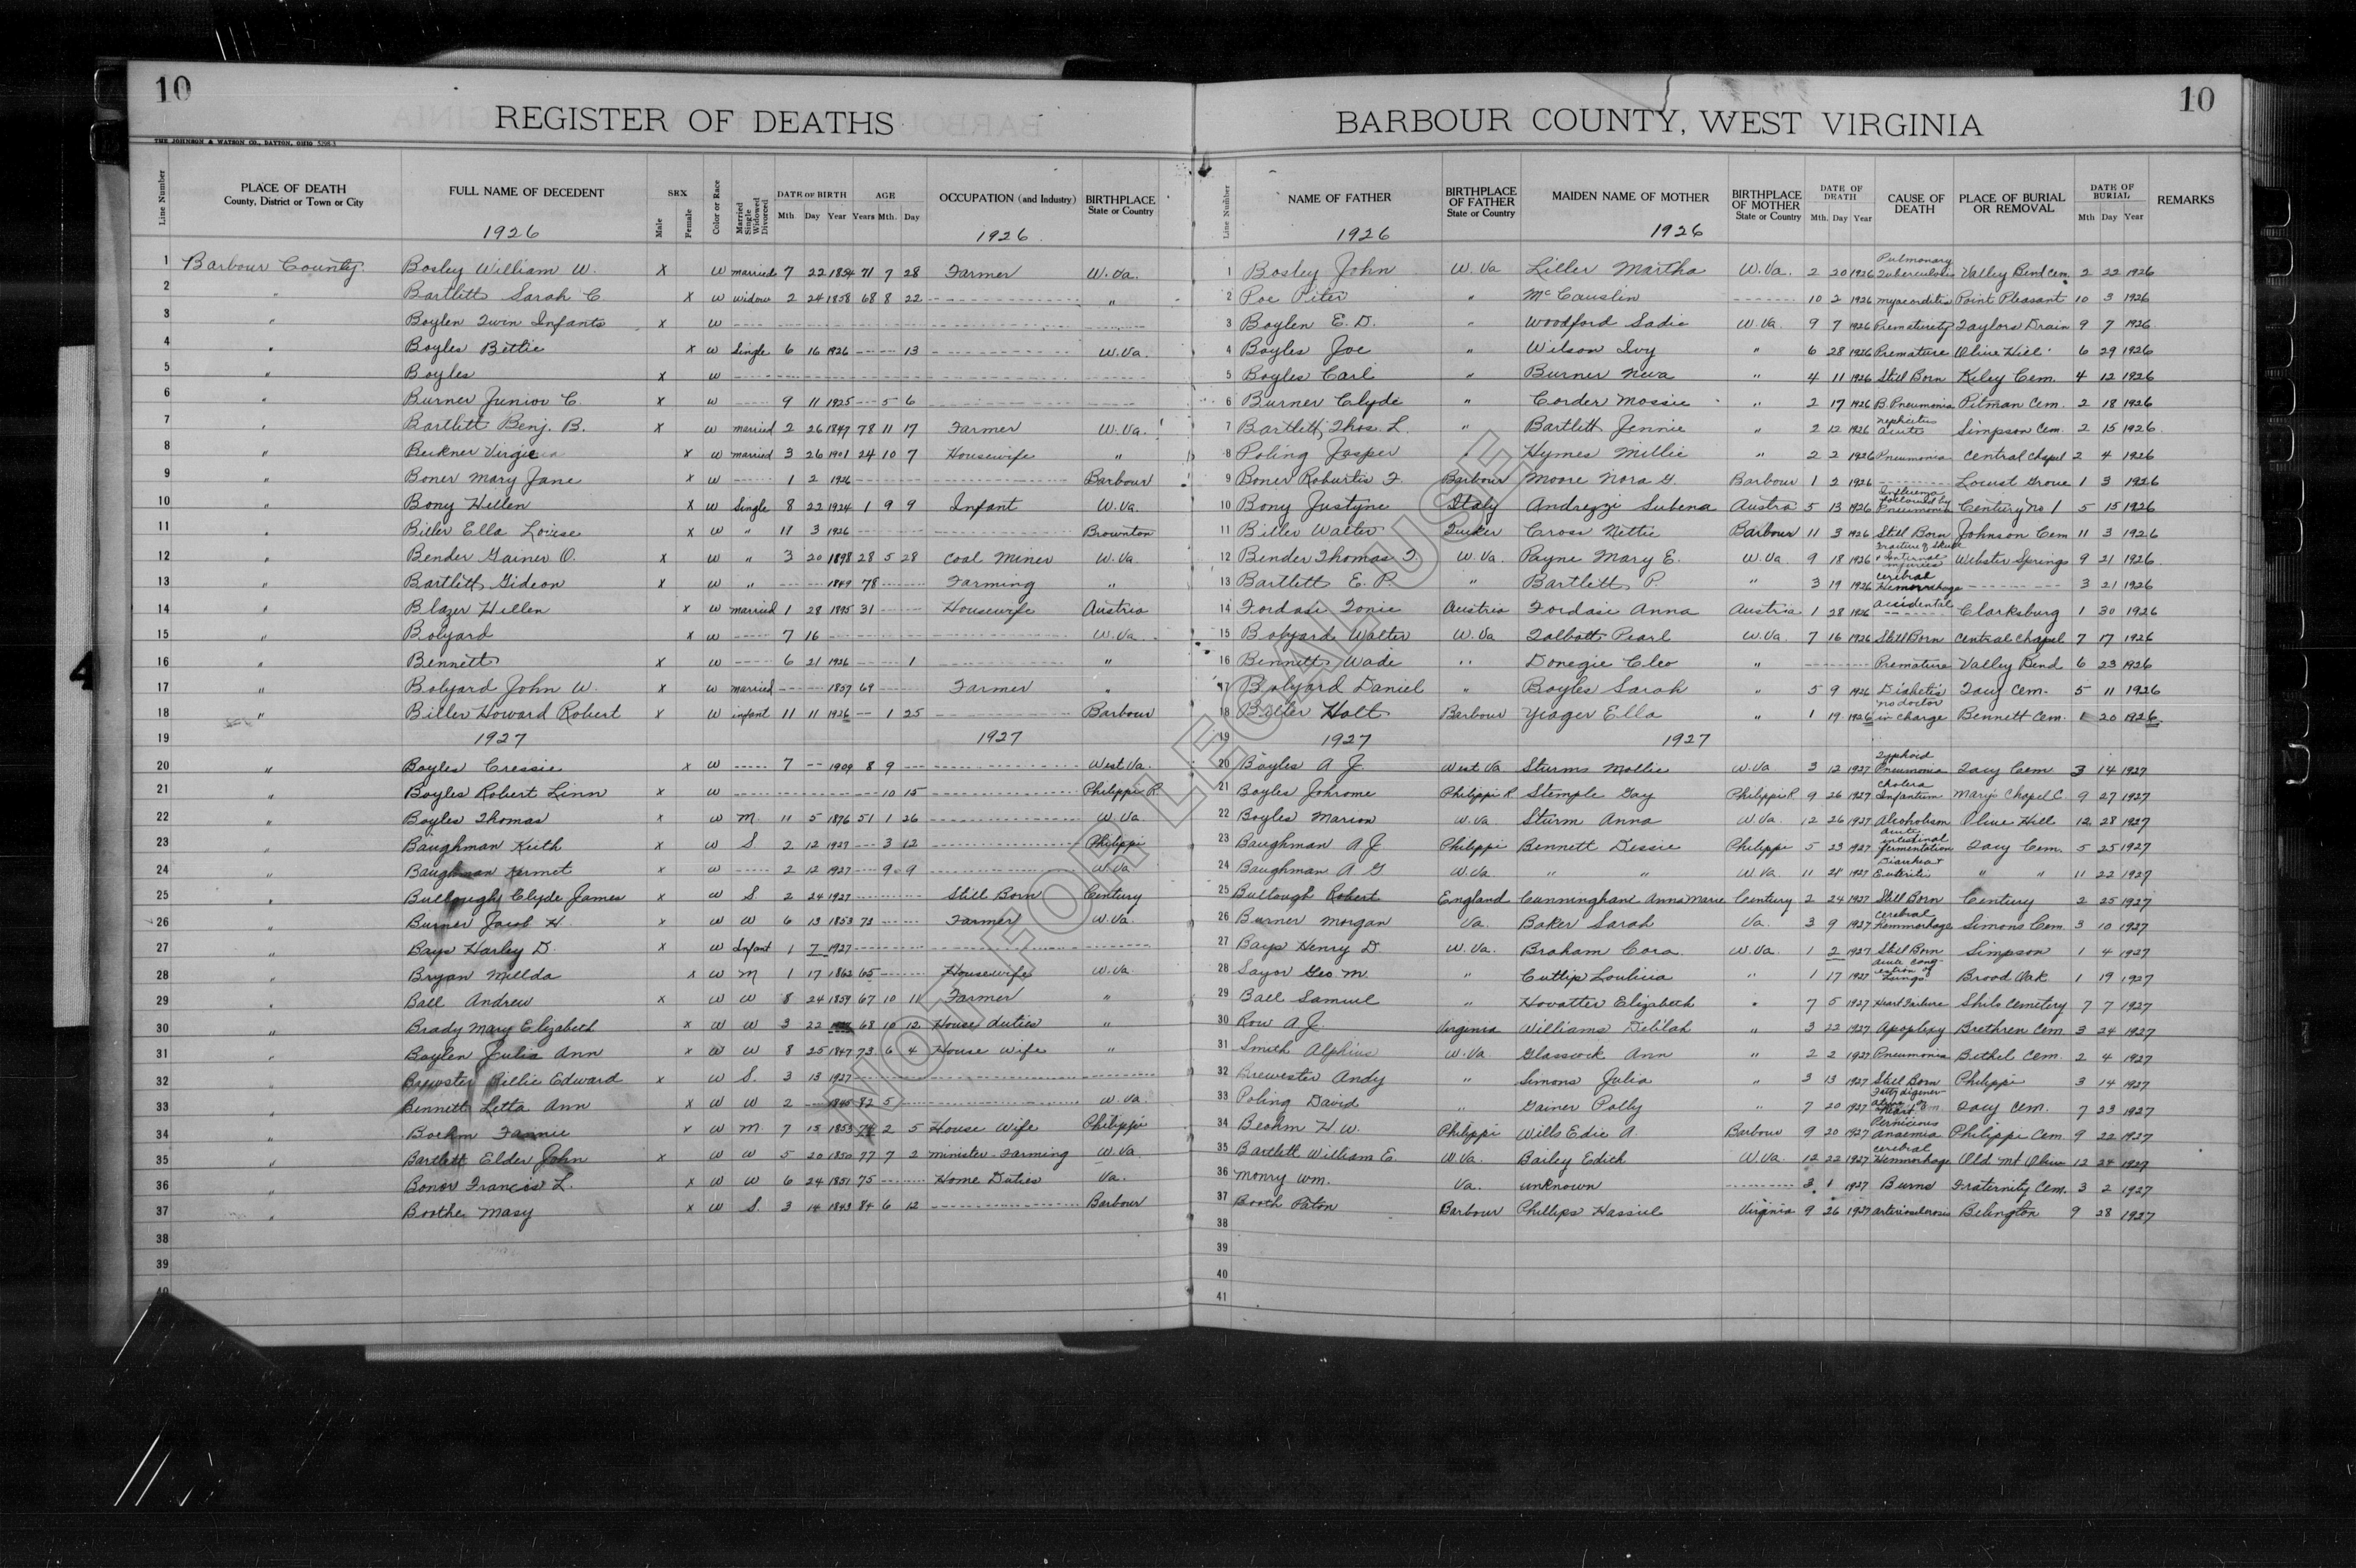 10
10
REGISTER OF DEATHS
BARBOUR COUNTY, WEST VIRGINIA
THE JOHNSON & WATSON CO., DAYTON, OHIO
Line Number PLACE OF DEATH County, District or Town or City FULL NAME OF DECEDENT SEX Male Female Color or Race Married Single Widowed Divorced DATE OF BIRTH Mth Day Year AGE Years Mth. Day OCCUPATION (and Industry) BIRTHPLACE State or Country
Line Number NAME OF FATHER BIRTHPLACE OF FATHER State or Country MAIDEN NAME OF MOTHER BIRTHPLACE OF MOTHER State or Country DATE OF DEATH Mth. Day Year CAUSE OF DEATH PLACE OF BURIAL OR REMOVAL DATE OF BURIAL Mth Day Year REMARKS
1926 1926 1926 1926
1 Barbour County Bosley William W. X W married 7 22 1854 71 7 28 Farmer W. Va. 1 Bosley John W. Va Liller Martha W. Va. 2 20 1926 Pulmonary Tuberculosis Valley Bend Cem. 2 22 1926
2 " Bartlett Sarah C. X W widow 2 24 1858 68 8 22 " 2 Poe Peter " McCauslin 10 2 1926 myocarditis Point Pleasant 10 3 1926
3 " Boylen Twin Infants X W 3 Boylen E. D. " Woodford Sadie W. Va 9 7 1926 Prematurety Taylors Drain 9 7 1926
4 " Boyles Bettie X W Single 6 16 1926 13 W. Va. 4 Boyles Joe " Wilson Ivy " 6 28 1926 Premature Olive Hill 6 29 1926
5 " Boyles X W 5 Boyles Carl " Burner Neva " 4 11 1926 Still Born Kiley Cem. 4 12 1926
6 " Burner Junior C. X W 9 11 1925 5 6 6 Burner Clyde " Corder Mossie " 2 17 1926 B. Pneumonia Pitman Cem. 2 18 1926
7 " Bartlett Benj. B. X W married 2 26 1847 78 11 17 Farmer W. Va. 7 Bartlett, Thos. L. " Bartlett Jennie " 2 12 1926 nephritis acute Simpson Cem. 2 15 1926
8 " Beckner X W married 3 26 1901 24 10 7 Housewife " 8 Poling Jasper " Hymes Millie " 2 2 1926 Pneumonia Central Chapel 2 4 1926
9 " Boner Mary Jane X W 1 2 1926 Barbour 9 Boner Roburtis F. Barbour Moore Nora G. Barbour 1 2 1926 Locust Grove 1 3 1926
10 " Bony Hellen X W Single 8 22 1924 1 9 9 Infant W. Va. 10 Bony Justyne Italy Andrezzi Subena Austra 5 13 1926 Influenza followed by Pneumonia Century No 1 5 15 1926
11 " Biller Ella Louise X W " 11 3 1926 Brownton 11 Biller Walter Tucker Cross Nettie Barbour 11 3 1926 Still Born Johnson Cem 11 3 1926
12 " Bender Gainer O. X W " 3 20 1898 28 5 28 Coal Miner W. Va. 12 Bender Thomas W. Va. Payne Mary E. W. Va. 9 18 1926 Fracture of Skull & Internal injuries Webster Springs 9 21 1926
13 " Bartlett Gideon X W " 1849 78 Farming " 13 Bartlett E. P. " Bartlett P. " 3 19 1926 Cerebral Hemorrhage 3 21 1926
14 " Blazer Hellen X W married 1 28 1895 31 Housewife Austria 14 Fordasi Tonie Austria Fordasi Anna Austria 1 28 1926 accidental Clarksburg 1 30 1926
15 " Bolyard X W 7 16 W. Va. 15 Bolyard Walter W. Va Talbott Pearl W. Va 7 16 1926 Still Born Central Chapel 7 17 1926
16 " Bennett X W 6 21 1926 1 " 16 Bennett Wade " Donegie Cleo " Premature Valley Bend 6 23 1926
17 " Bolyard John W. X W married 1857 69 Farmer " 17 Bolyard Daniel " Boyles Sarah " 5 9 1926 Diabetis Tacy Cem. 5 11 1926
18 " Biller Howard Robert X W infant 11 11 1926 1 25 Barbour 18 Biller Holt Barbour Yeager Ella " 1 19 1926 no doctor in charge Bennett Cem. 1 20 1926
19 1927 1927 19 1927 1927
20 " Boyles Cressie X W 7 1909 8 9 West Va. 20 Boyles A. J. West Va Sturms Mollie W. Va 3 12 1927 Typhoid Pneumonia Tacy Cem 3 14 1927
21 " Boyles Robert Linn X W 10 15 Philippi R. 21 Boyles Johrome Philippi R. Stemple Gay Philippi R. 9 26 1927 Cholera Infantum Marys Chapel C. 9 27 1927
22 " Boyles Thomas X W M. 11 5 1876 51 1 26 W. Va 22 Boyles Marion W. Va. Sturm Anna W. Va. 12 26 1927 Alcoholism Olive Hill 12 28 1927
23 " Baughman Keith X W S 2 12 1927 3 12 Philippi 23 Baughman A J Philippi Bennett Dessie Philippi 5 23 1927 Acute intestinal fermentation Tacy Cem. 5 25 1927
24 " Baughman Kermet X W 2 12 1927 9 9 W. Va 24 Baughman A G W. Va " " W. Va. 11 21 1927 Diarrhea & Enteritis " " 11 22 1927
25 " Bullough Clyde James X W S 2 24 1927 Still Born Century 25 Bullough Robert England Cunningham Anna Marie Century 2 24 1927 Still Born Century 2 25 1927
26 " Burner Jacob H. X W W 6 13 1853 73 Farmer W. Va. 26 Burner Morgan Va. Baker Sarah Va. 3 9 1927 Cerebral Hemmorhage Simons Cem. 3 10 1927
27 " Bays Harley D. X W Infant 1 7 1927 27 Bays Henry D. W. Va. Braham Cora W. Va. 1 2 1927 Still Born Simpson 1 4 1927
28 " Bryan Mellda X W M 1 17 1862 65 Housewife W. Va. 28 Sayor Geo M. " Cutlip Loulicia " 1 17 1927 acute congestion of Lungs Brood Oak 1 19 1927
29 " Ball Andrew X W W 8 24 1859 67 10 11 Farmer " 29 Ball Samuel " Hovatter Elizabeth " 7 5 1927 Heart Failure Shilo Cemetery 7 7 1927
30 " Brady Mary Elizabeth X W W 3 22 68 10 12 House duties " 30 Row A. J. Virginia Williams Delilah " 3 22 1927 Apoplexy Brethren Cem. 3 24 1927
31 " Boylen Julia Ann X W W 8 25 1847 73 6 4 House Wife " 31 Smith Alphius W. Va Glasscock Ann " 2 2 1927 Pneumonia Bethel Cem. 2 4 1927
32 " Brewster Rillie Edward X W S. 3 13 1927 32 Brewester Andy " Simons Julia " 3 13 1927 Still Born Philippi 3 14 1927
33 " Bennett Letta Ann X W W 2 1845 82 5 W. Va. 33 Poling David " Gainer Polly " 7 20 1927 Fatty degeneration of Heart Tacy Cem. 7 23 1927
34 " Boehm Fannie X W M. 7 15 1853 74 2 5 House Wife Philippi 34 Beohm H. W. Philippi Wills Edie A. Barbour 9 20 1927 Pernicious Anaemia Philippi Cem. 9 22 1927
35 " Bartlett Elder John X W W 5 20 1850 77 7 2 minister - Farming W. Va. 35 Bartlett William E. W. Va. Bailey Edith W. Va. 12 22 1927 Cerebral Hemmorhage Old Mt Olive 12 24 1927
36 " Boner Francis L. X W W 6 24 1851 75 Home Duties Va. 36 Monry Wm. Va. unknown 3 1 1927 Burns Fraternity Cem. 3 2 1927
37 " Boothe Masy X W S. 3 14 1843 84 6 12 Barbour 37 Booth Paton Barbour Phillips Hassiel Virginia 9 26 1927 arteriosclerosis Belington 9 28 1927
38 38
39 39
40 40
41
NOT FOR LEGAL USE